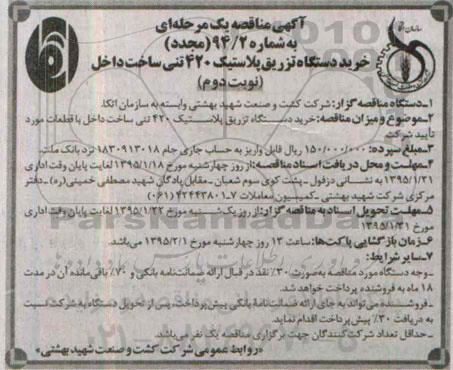 آگهی مناقصه یک مرحله‌ای
به شماره ۹۴/۲ (مجدد)
خرید دستگاه تزریق پلاستیک ۴۲۰ تنی ساخت داخل
(نوبت دوم)
۱ـ دستگاه مناقصه گزار: شرکت کشت و صنعت شهید بهشتی وابسته به سازمان اتکا.
۲ـ موضوع و میزان مناقصه: خرید دستگاه تزریق پلاستیک ۴۲۰ تنی ساخت داخل با قطعات مورد
تأیید شرکت
۳ـ مبلغ سپرده: ۱۵۰/۰۰۰/۰۰۰ ریال قابل واریز به حساب جاری جام ۱۸۳۰۹۱۳۰۱۸ نزد بانک ملت.
۴ـ مهلت و محل دریافت اسناد مناقصه: از روز چهارشنبه مورخ ۱۳۹۵/۱/۱۸ لغایت پایان وقت اداری
۱۳۹۵/۱/۲۱ به نشانی دزفول ـ پشت کوی سوم شعبان ـ مقابل پادگان شهید مصطفی خمینی (ره) ـ دفتر
مرکزی شرکت شهید بهشتی ـ کمیسیون معاملات ۷ـ ۰۶۱)۴۲۴۴۳۸۰۱)
۵ـ مهلت تحویل اسناد به مناقصه گزار: از روز یک‌شنبه مورخ ۱۳۹۵/۱/۲۲ لغایت پایان وقت اداری
مورخ ۱۳۹۵/۱/۳۱
۶ـ زمان بازگشایی پاکت‌ها: ساعت ۱۳ روز چهارشنبه مورخ ۱۳۹۵/۲/۱ می‌باشد.
۷ـ سایر شرایط:
ـ وجه دستگاه مورد مناقصه به صورت ۳۰٪ نقد در قبال ارائه ضمانت‌نامه بانکی و ۷۰٪ باقی‌مانده آن در مدت
۱۸ ماه به فروشنده پرداخت خواهد شد.
ـ فروشنده می‌تواند به جای ارائه ضمانت‌نامهٔ بانکی پیش‌پرداخت، پس از تحویل دستگاه به شرکت نسبت
به دریافت ۳۰٪ پیش‌پرداخت اقدام نماید.
ـ حداقل تعداد شرکت‌کنندگان جهت برگزاری مناقصه یک نفر می‌باشد.
«روابط عمومی شرکت کشت و صنعت شهید بهشتی»
ParsNamadData